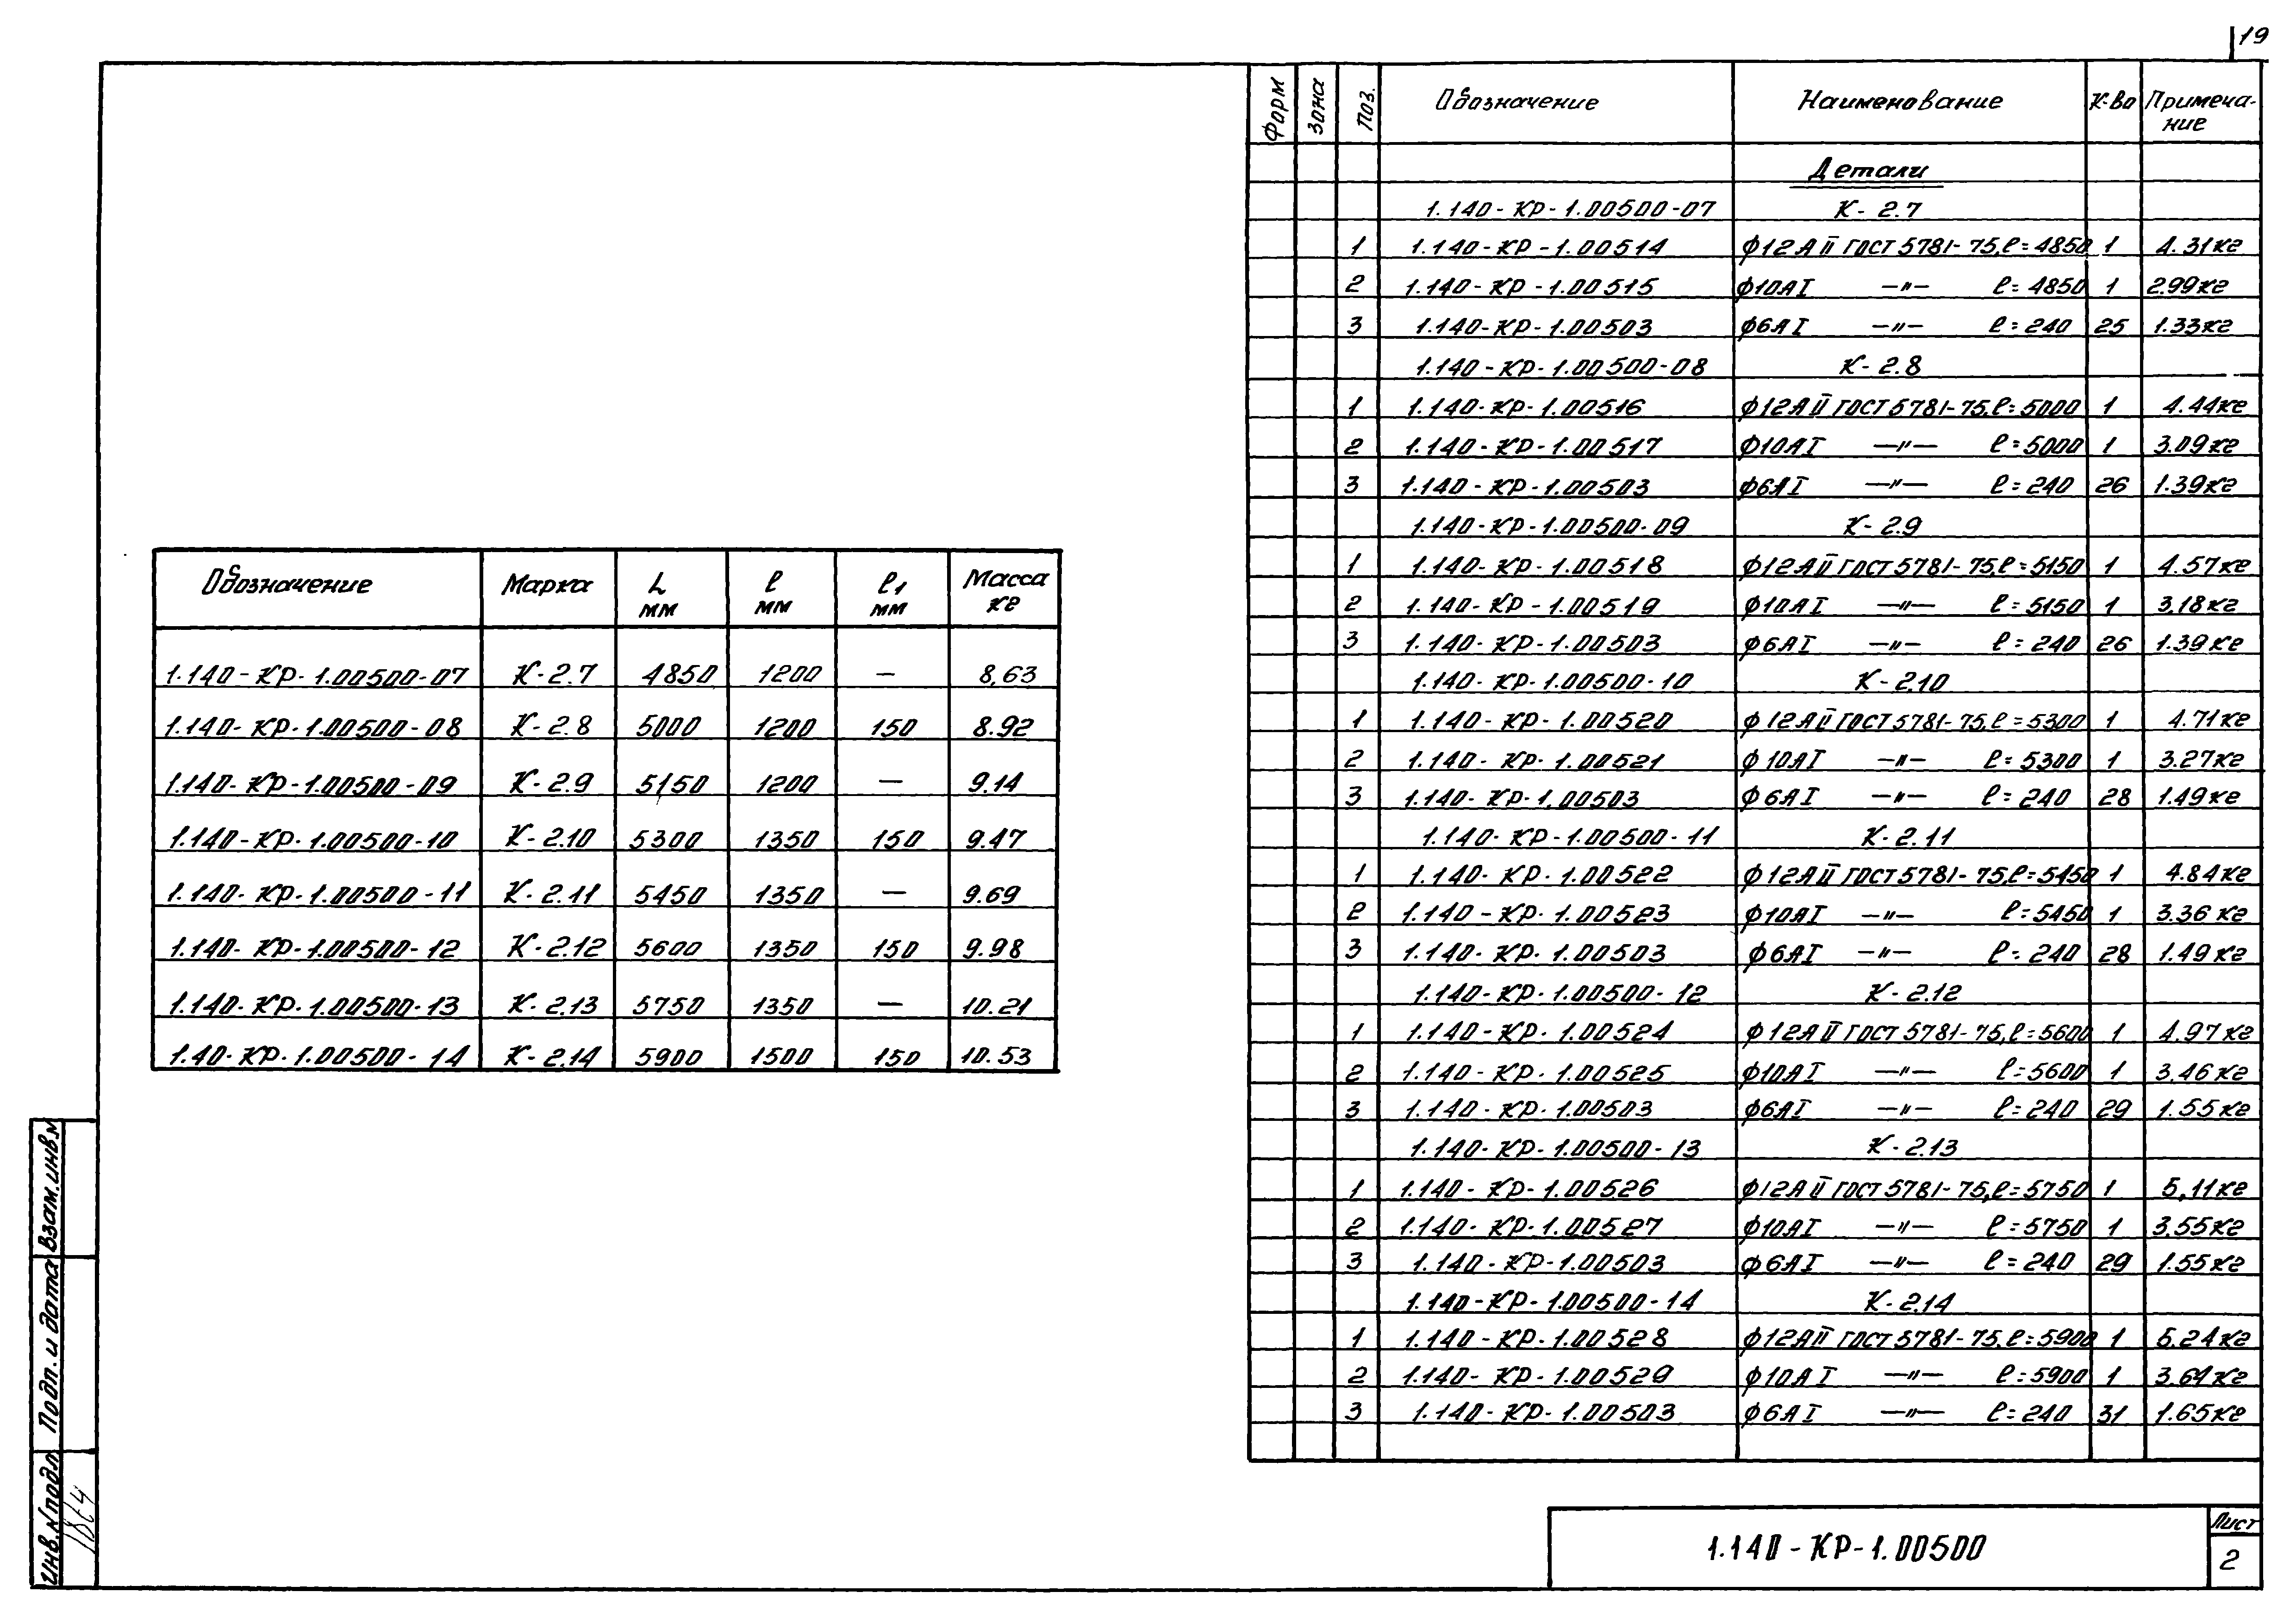 19
Обозначение Марка L мм ℓ мм ℓ1 мм Масса кг
1.140-КР-1.00500-07 К-2.7 4850 1200 — 8,63
1.140-КР-1.00500-08 К-2.8 5000 1200 150 8.92
1.140-КР-1.00500-09 К-2.9 5150 1200 — 9.14
1.140-КР-1.00500-10 К-2.10 5300 1350 150 9.47
1.140-КР-1.00500-11 К-2.11 5450 1350 — 9.69
1.140-КР-1.00500-12 К-2.12 5600 1350 150 9.98
1.140-КР-1.00500-13 К-2.13 5750 1350 — 10.21
1.40-КР-1.00500-14 К-2.14 5900 1500 150 10.53
Форм Зона Поз. Обозначение Наименование К-во Примеча-
ние
Детали
1.140-КР-1.00500-07 К-2.7
1 1.140-КР-1.00514 ф12АII ГОСТ 5781-75, ℓ=4850 1 4.31кг
2 1.140-КР-1.00515 ф10АI —"— ℓ=4850 1 2.99кг
3 1.140-КР-1.00503 ф6АI —"— ℓ=240 25 1.33кг
1.140-КР-1.00500-08 К-2.8
1 1.140-КР-1.00516 ф12АII ГОСТ 5781-75, ℓ=5000 1 4.44кг
2 1.140-КР-1.00517 ф10АI —"— ℓ=5000 1 3.09кг
3 1.140-КР-1.00503 ф6АI —"— ℓ=240 26 1.39кг
1.140-КР-1.00500-09 К-2.9
1 1.140-КР-1.00518 ф12АII ГОСТ 5781-75, ℓ=5150 1 4.57кг
2 1.140-КР-1.00519 ф10АI —"— ℓ=5150 1 3,18кг
3 1.140-КР-1.00503 ф6АI —"— ℓ=240 26 1.39кг
1.140-КР-1.00500-10 К-2.10
1 1.140-КР-1.00520 ф12АII ГОСТ 5781-75, ℓ=5300 1 4.71кг
2 1.140-КР-1.00521 ф10АI —"— ℓ=5300 1 3.27кг
3 1.140-КР-1.00503 ф6АI —"— ℓ=240 28 1.49кг
1.140-КР-1.00500-11 К-2.11
1 1.140-КР-1.00522 ф12АII ГОСТ 5781-75, ℓ=5450 1 4.84кг
2 1.140-КР-1.00523 ф10АI —"— ℓ=5450 1 3.36кг
3 1.140-КР-1.00503 ф6АI —"— ℓ=240 28 1.49кг
1.140-КР-1.00500-12 К-2.12
1 1.140-КР-1.00524 ф12АII ГОСТ 5781-75, ℓ=5600 1 4.97кг
2 1.140-КР-1.00525 ф10АI —"— ℓ=5600 1 3.46кг
3 1.140-КР-1.00503 ф6АI —"— ℓ=240 29 1.55кг
1.140-КР-1.00500-13 К-2.13
1 1.140-КР-1.00526 ф12АII ГОСТ 5781-75, ℓ=5750 1 5,11кг
2 1.140-КР-1.00527 ф10АI —"— ℓ=5750 1 3.55кг
3 1.140-КР-1.00503 ф6АI —"— ℓ=240 29 1.55кг
1.140-КР-1.00500-14 К-2.14
1 1.140-КР-1.00528 ф12АII ГОСТ 5781-75, ℓ=5900 1 5.24кг
2 1.140-КР-1.00529 ф10АI —"— ℓ=5900 1 3.64кг
3 1.140-КР-1.00503 ф6АI —"— ℓ=240 31 1.65кг
Взам.инв.N
Подп. и дата
Инв.N подл.
1.140-КР-1.00500
Лист
2